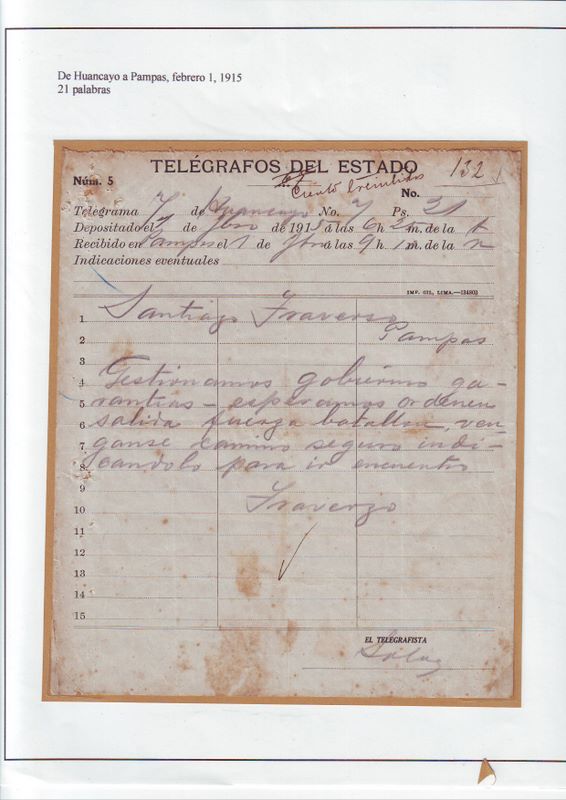 De Huancayo a Pampas, febrero 1, 1915
21 palabras
TELÉGRAFOS DEL ESTADO
Núm. 5
Ciento treintidos
No. 132
Telegrama 7 de Huancayo No. 7 Ps. 21
Depositado el de de 1915 á las 6 h. m. de la t
Recibido en Pampas el 1 de á las 9 h. 1 m. de la n
Indicaciones eventuales
IMP. GIL, LIMA.—
1 Santiago Traverso
2 Pampas
3
4 Gestionamos gobierno ga-
5 rantias - esperamos ordenen
6 salida fuerza batallon, ven-
7 ganse camino seguro indi-
8 candolo para ir encuentro
9
10 Traverzo
11
12
13
14
15
EL TELEGRAFISTA